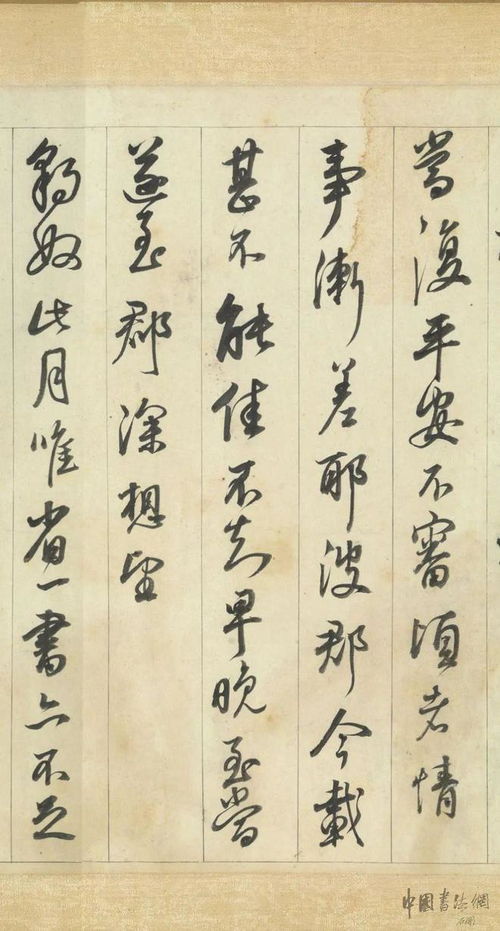 當復平安不審頃者情
事漸差耶彼郡今載
甚不能佳不知早晚至當
遂至郡深想望
鵝奴此月唯省一書亦不足
中國書法網